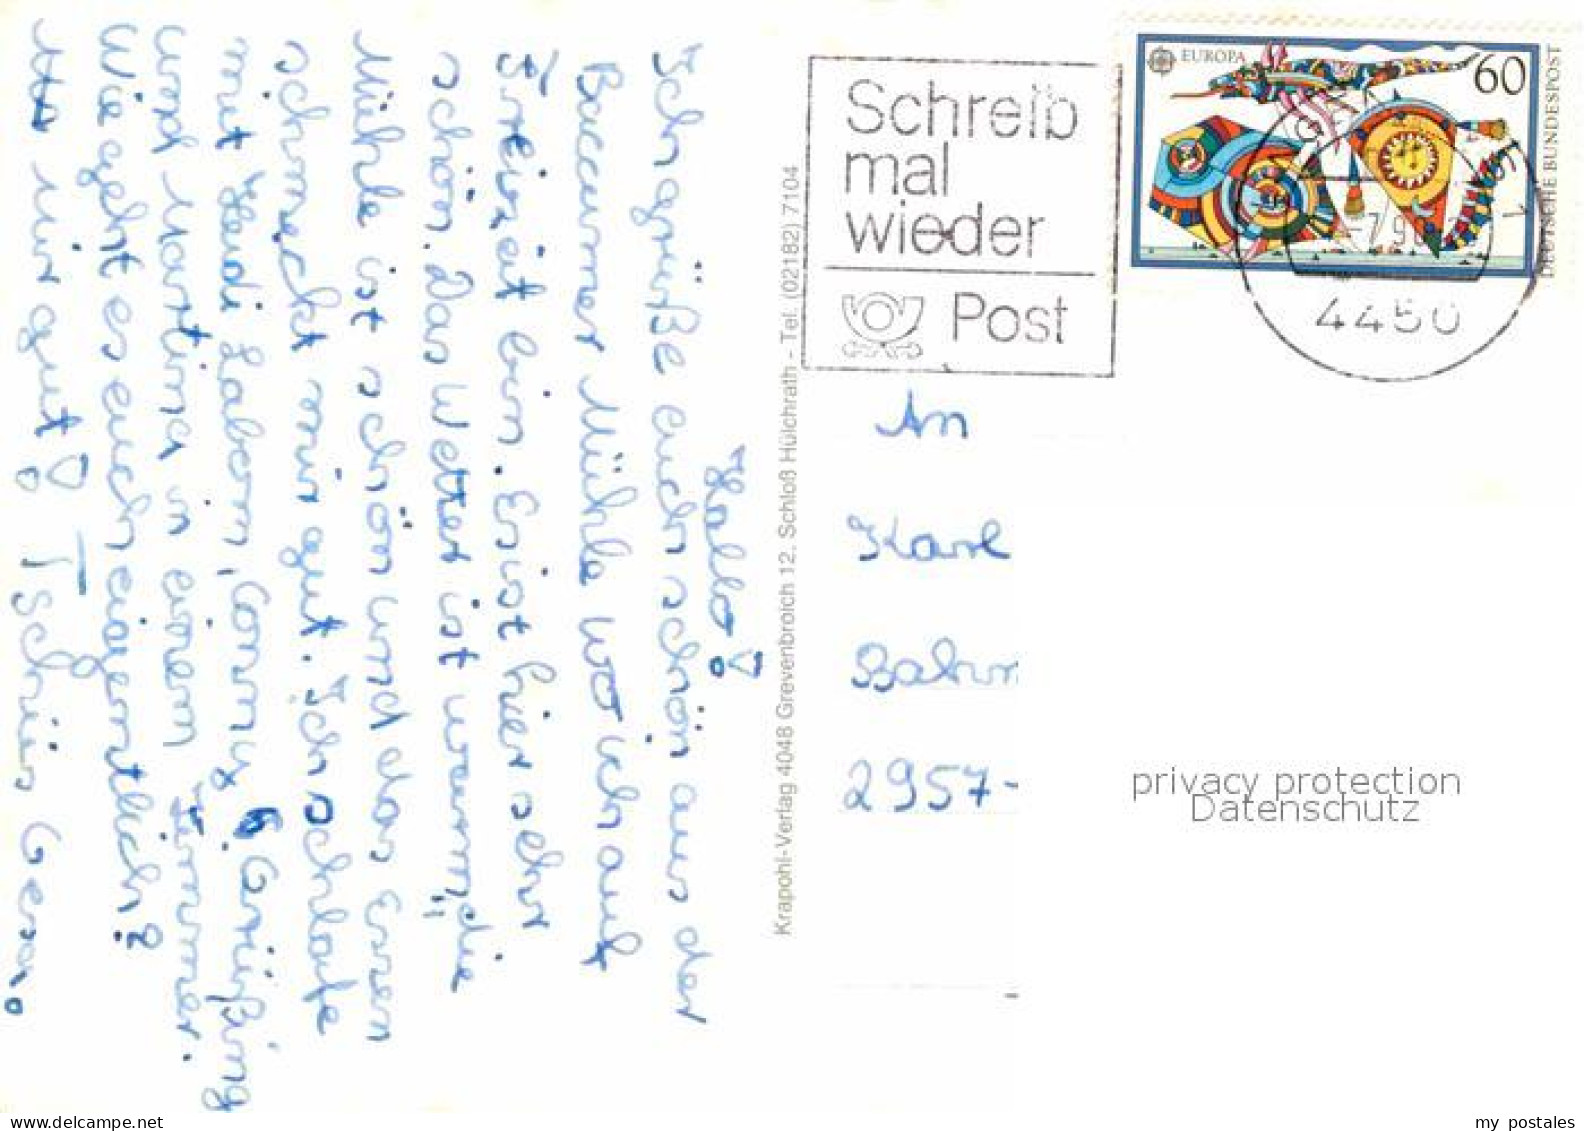 Hallo!
Ich grüße euch schön aus der
Baccumer Mühle wo ich auf
Freizeit bin. Es ist hier sehr
schön. Das Wetter ist warm, die
Mühle ist schön und das Essen
schmeckt mir gut. Ich schlafe
mit Heidi Labom, Conny
und Martina in einem Zimmer.
Wie geht es euch eigentlich?
mir gut! Tschüs Gesa.
Krapohl-Verlag 4048 Grevenbroich 12. Schloß Hülchrath - Tel. (02182) 7104
Schreib
mal
wieder
Post
EUROPA
60
DEUTSCHE BUNDESPOST
4450
An
Karl
2957-
privacy protection
Datenschutz
www.delcampe.net
my_postales